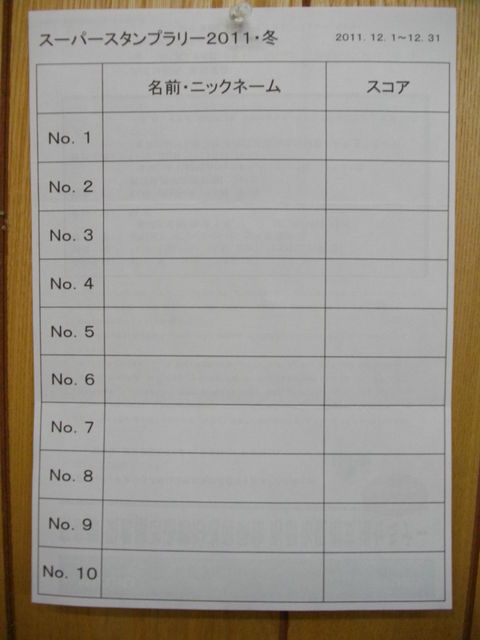 スーパースタンプラリー2011・冬 2011. 12. 1～12. 31
名前・ニックネーム スコア
No. 1
No. 2
No. 3
No. 4
No. 5
No. 6
No. 7
No. 8
No. 9
No. 10